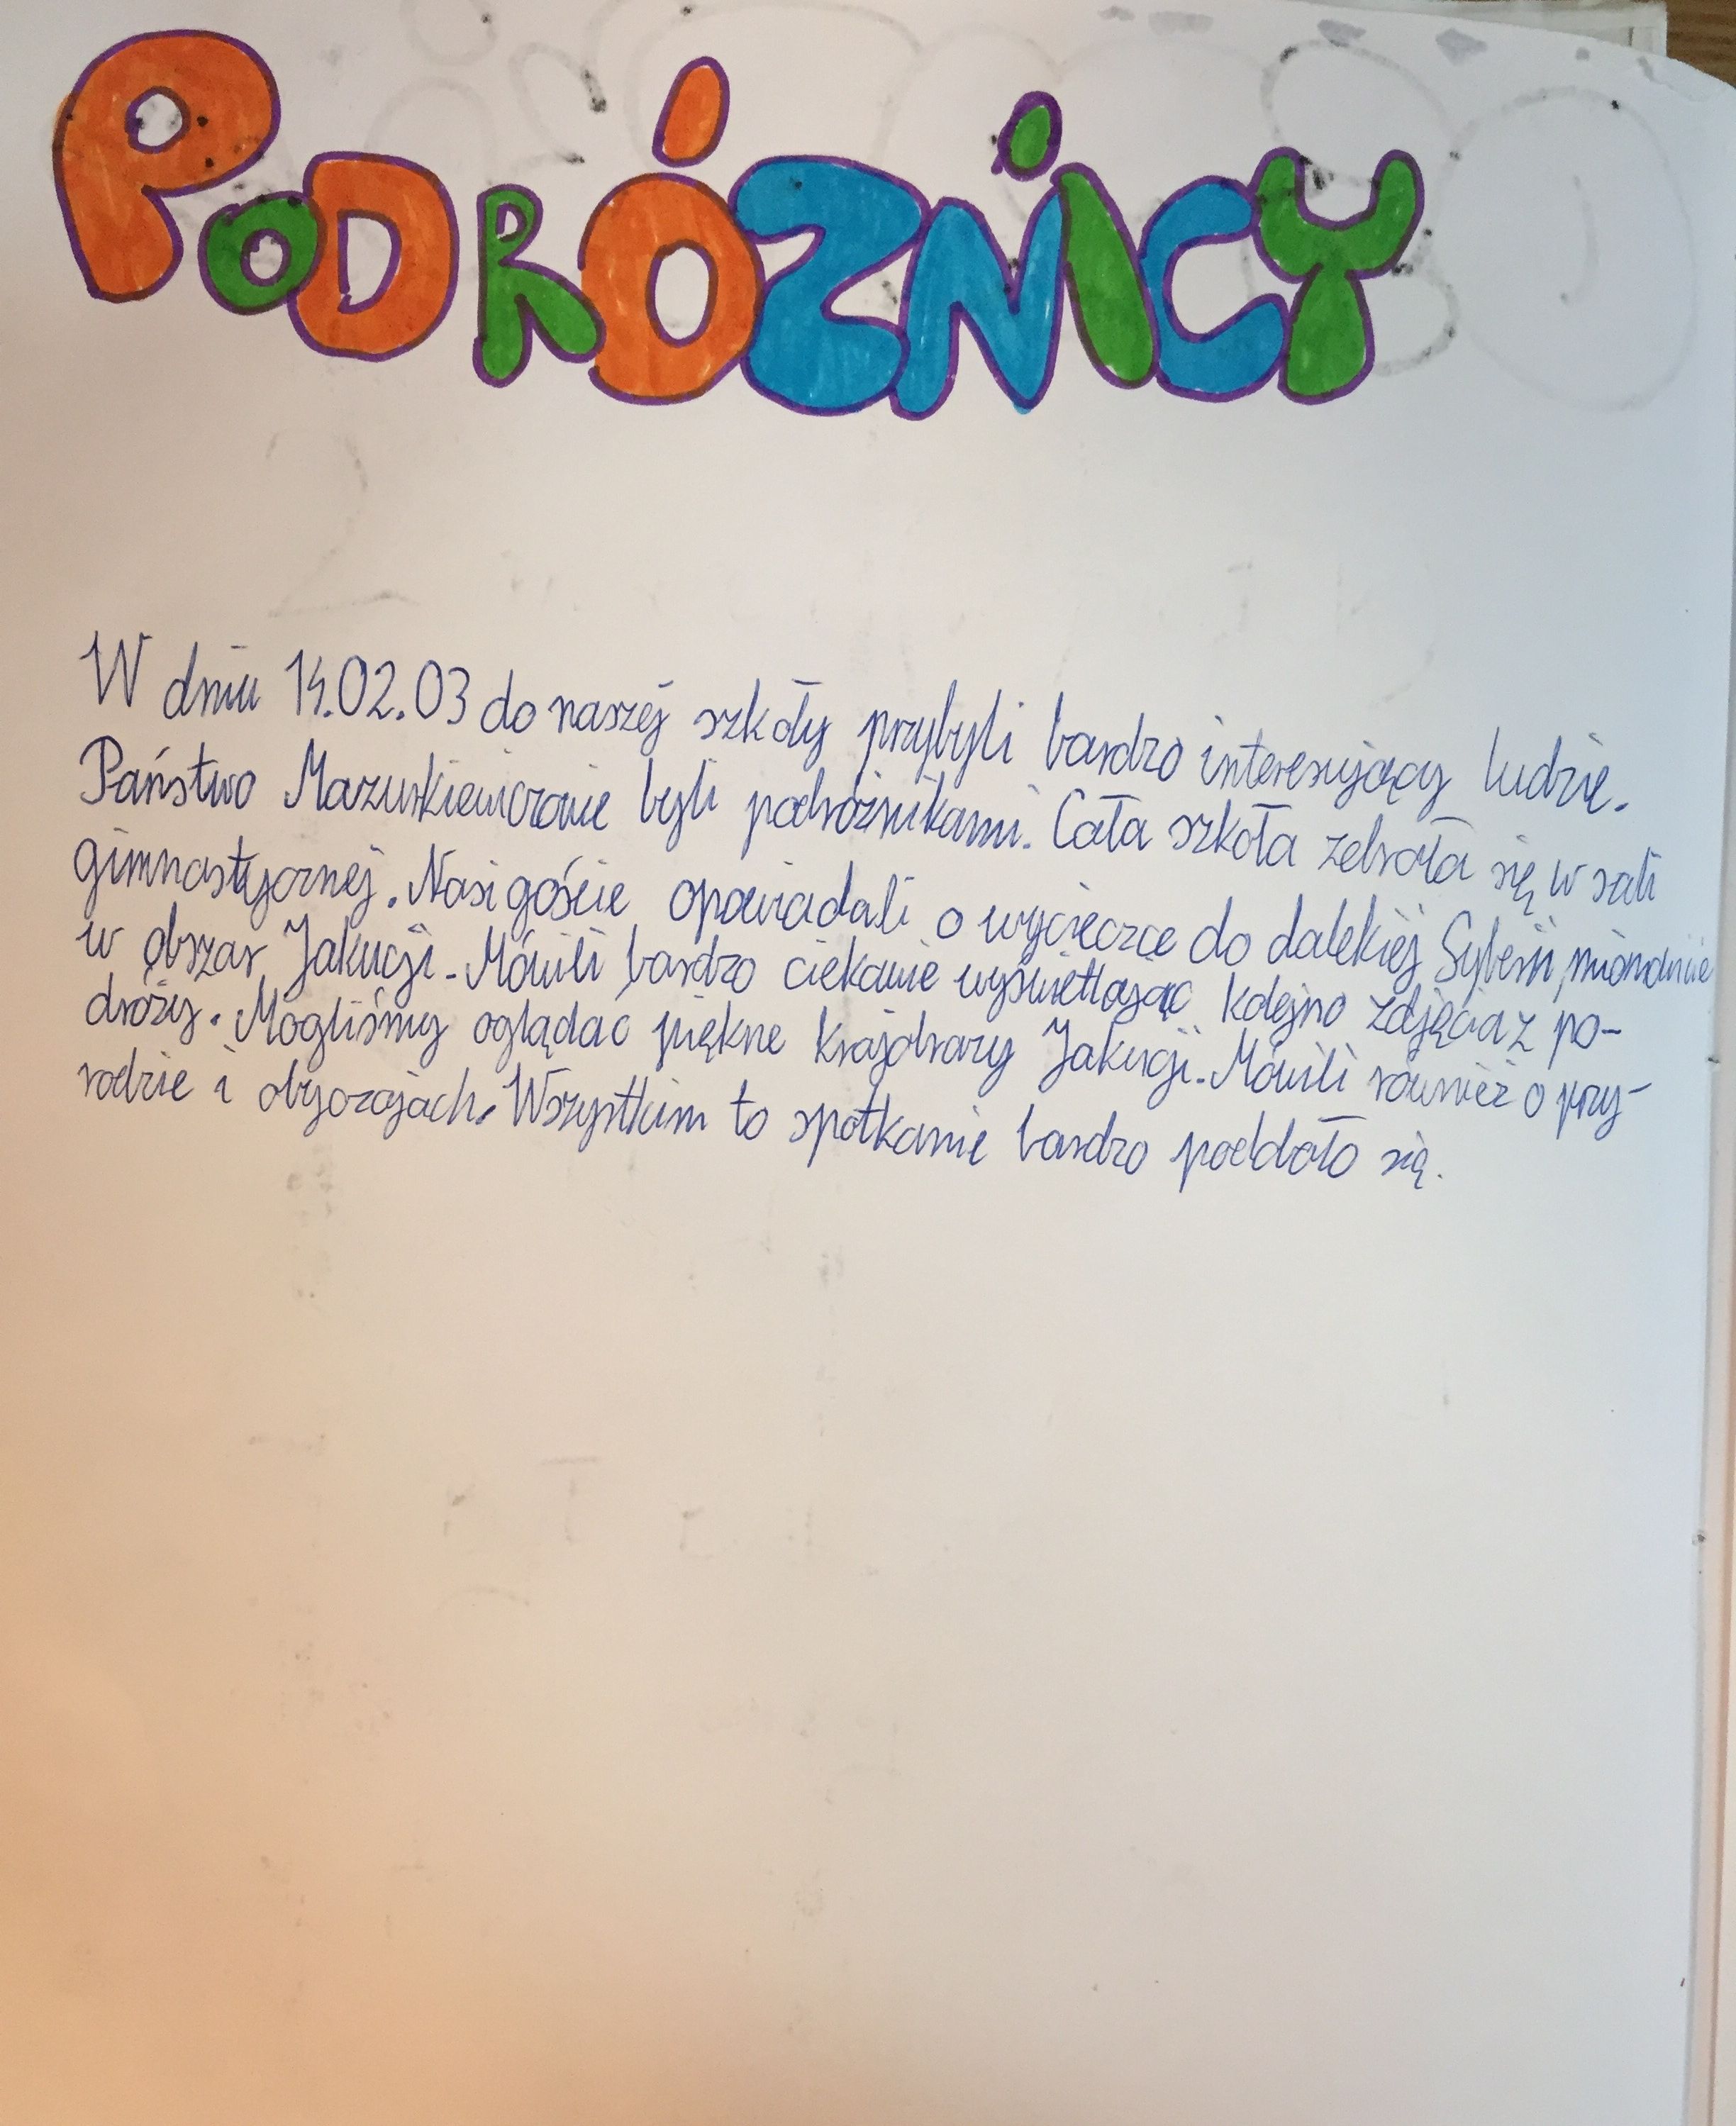 PODRÓZNICY
W dniu 14.02.03 do naszej szkoły przybyli bardzo interesujący ludzie.
Państwo Mazurkiewiczowie byli podróżnikami. Cała szkoła zebrała się w sali
gimnastycznej. Nasi goście opowiadali o wycieczce do dalekiej Syberii, mianowicie
w obszar Jakucji. Mówili bardzo ciekawie wyświetlając kolejno zdjęcia z po-
dróży. Mogliśmy oglądać piękne krajobrazy Jakucji. Mówili również o przy-
rodzie i obyczajach. Wszystkim to spotkanie bardzo podobało się.